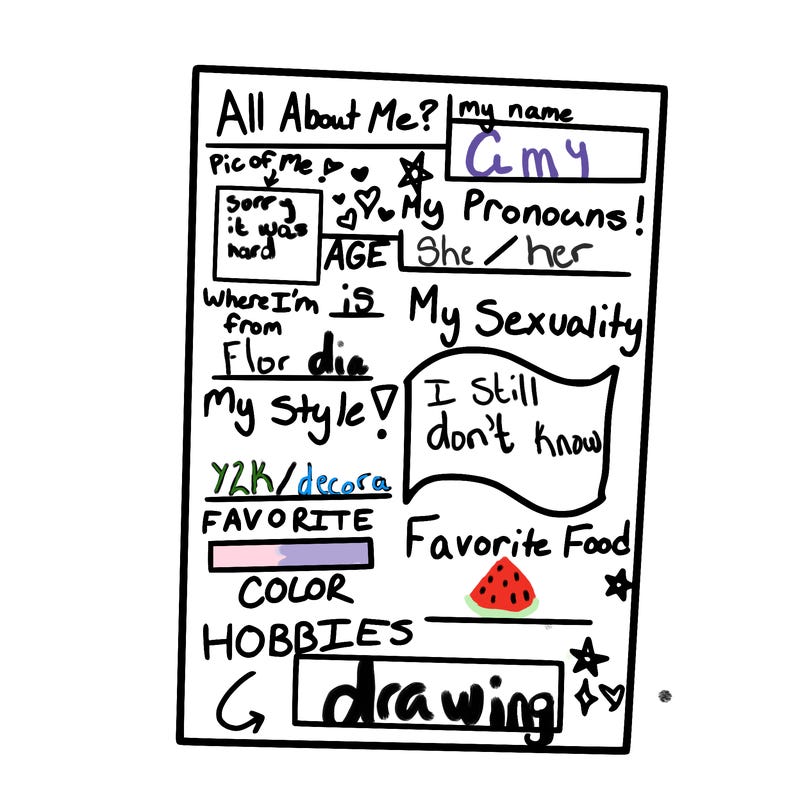 All About Me?
my name
amy
Pic of Me!
sorry
it was
hard
My Pronouns!
She / her
AGE
is
Where I'm
from
Flor dia
My Sexuality
I Still
don't know
My Style!
Y2K/decora
FAVORITE
COLOR
Favorite Food
HOBBIES
drawing